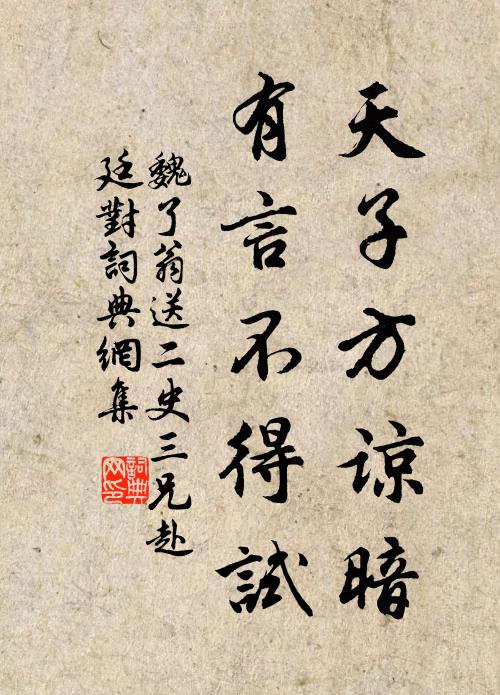 天子方谅暗
有言不得試
魏了翁送二史三兄赴
廷對詞典網集
詞典
网印